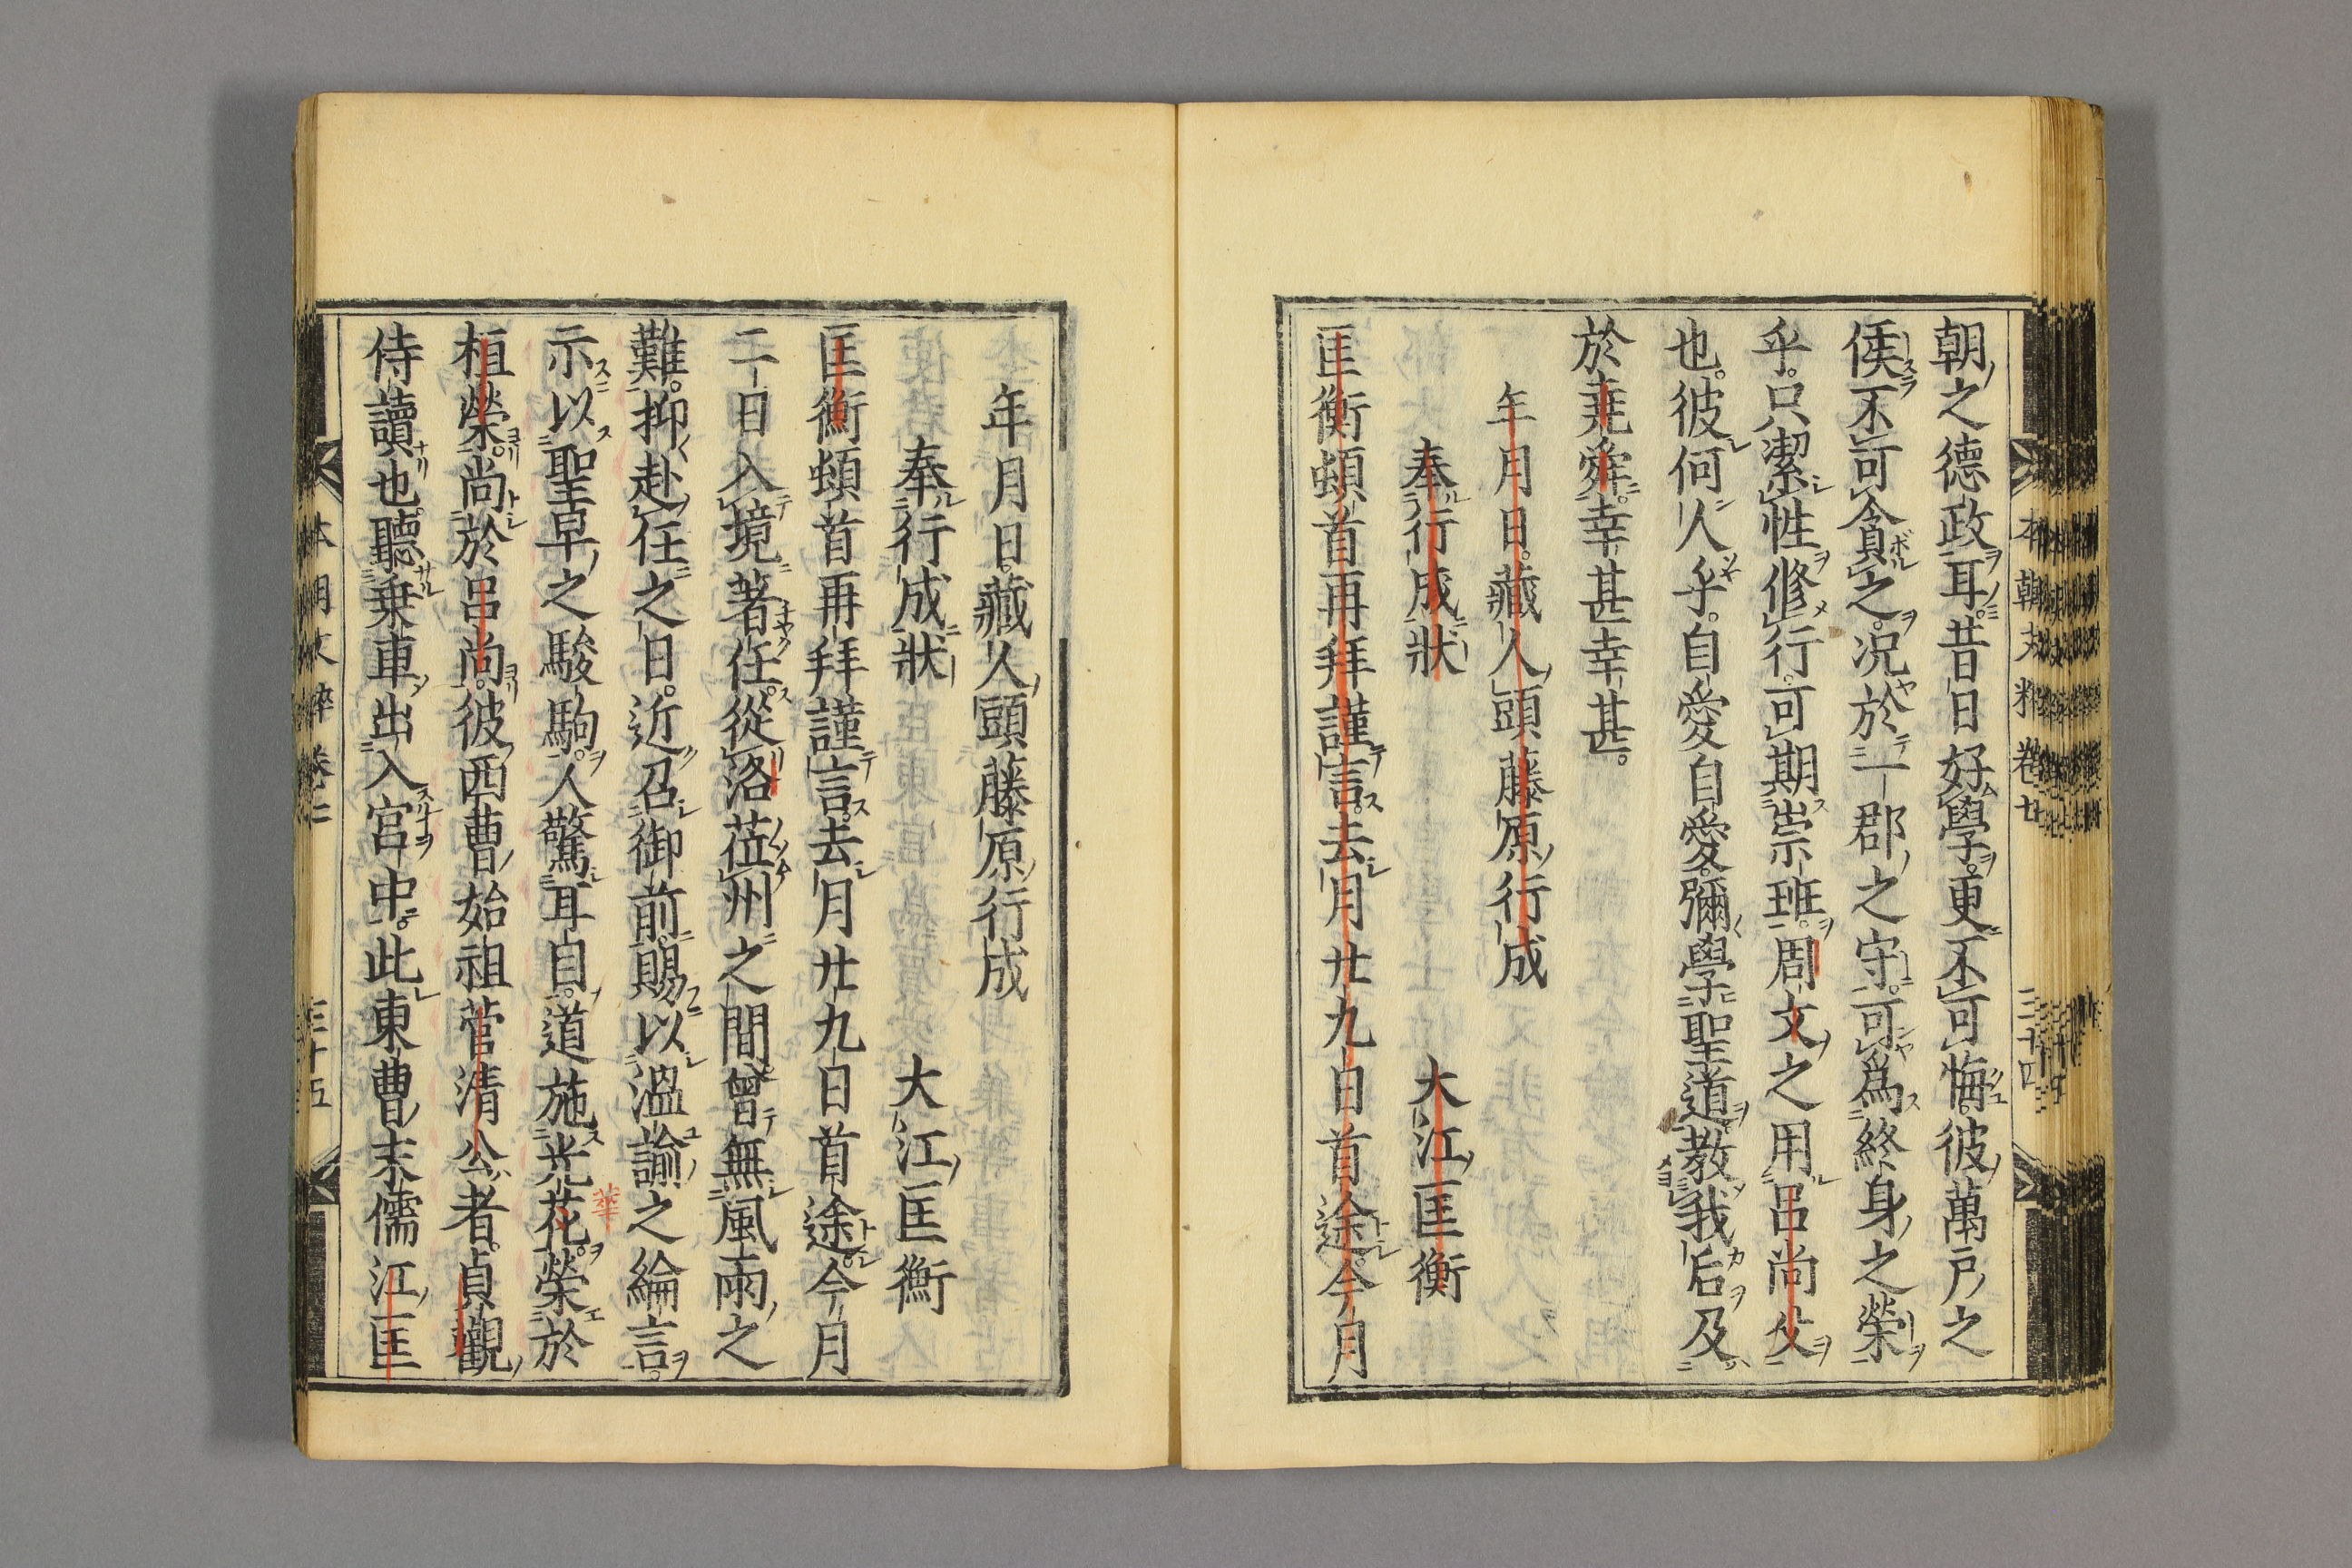 朝之德政耳昔日好學更不可悔彼萬戶之
侯不可貪之况於一郡之守可爲終身之榮
乎只潔性修行可期崇班周文之用呂尚父
也彼何人乎自愛自愛彌學聖道教我后及
於堯舜幸甚幸甚
年月日藏人頭藤原行成
奉行成狀 大江匡衡
匡衡頓首再拜謹言去月廿九日首途今月
年月日藏人頭藤原行成
奉行成狀 大江匡衡
匡衡頓首再拜謹言去月廿九日首途今月
二日入境著任從洛莅州之間曾無風雨之
難抑赴任之日近召御前賜以溫諭之綸言
示以聖皁之駿駒人驚耳自道施光花榮於
華
桓榮尚於呂尚彼西曹始祖菅清公者貞觀
侍讀也聽乘車出入宮中此東曹末儒江匡
本朝文粹卷廿
三十四
三十五